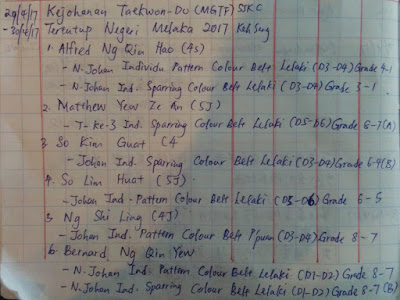 29/4/17 Kejohanan Taekwon-Do (MGTF) SJKC
-30/4/17 Tertutup Negeri Melaka 2017 Keh Seng
1. Alfred Ng Qin Hao (4S)
- N.Johan Individu Pattern Colour Belt Lelaki (D3-D4) Grade 4-1
- N.Johan Ind. Sparring Colour Belt Lelaki (D3-D4) Grade 3-1
2. Matthew Yew Ze An (5J)
- T-ke-3 Ind. Sparring Colour Belt Lelaki (D5-D6) Grade 8-7(A)
3 So Kim Guat (4
- Johan Ind. Sparring Colour Belt Lelaki (D3-D4) Grade 6-4(B)
4. So Lim Huat (5J)
- Johan Ind. Pattern Colour Belt Lelaki (D5-D6) Grade 6-5
5 Ng Shi Ling (4J)
- Johan Ind. Pattern Colour Belt P'puan (D3-D4) Grade 8-7
6. Bernard Ng Qin Yew
- N.Johan Ind. Pattern Colour Belt Lelaki (D1-D2) Grade 8-7
- N.Johan Ind. Sparring Colour Belt Lelaki (D1-D2) Grade 8-7 (B)